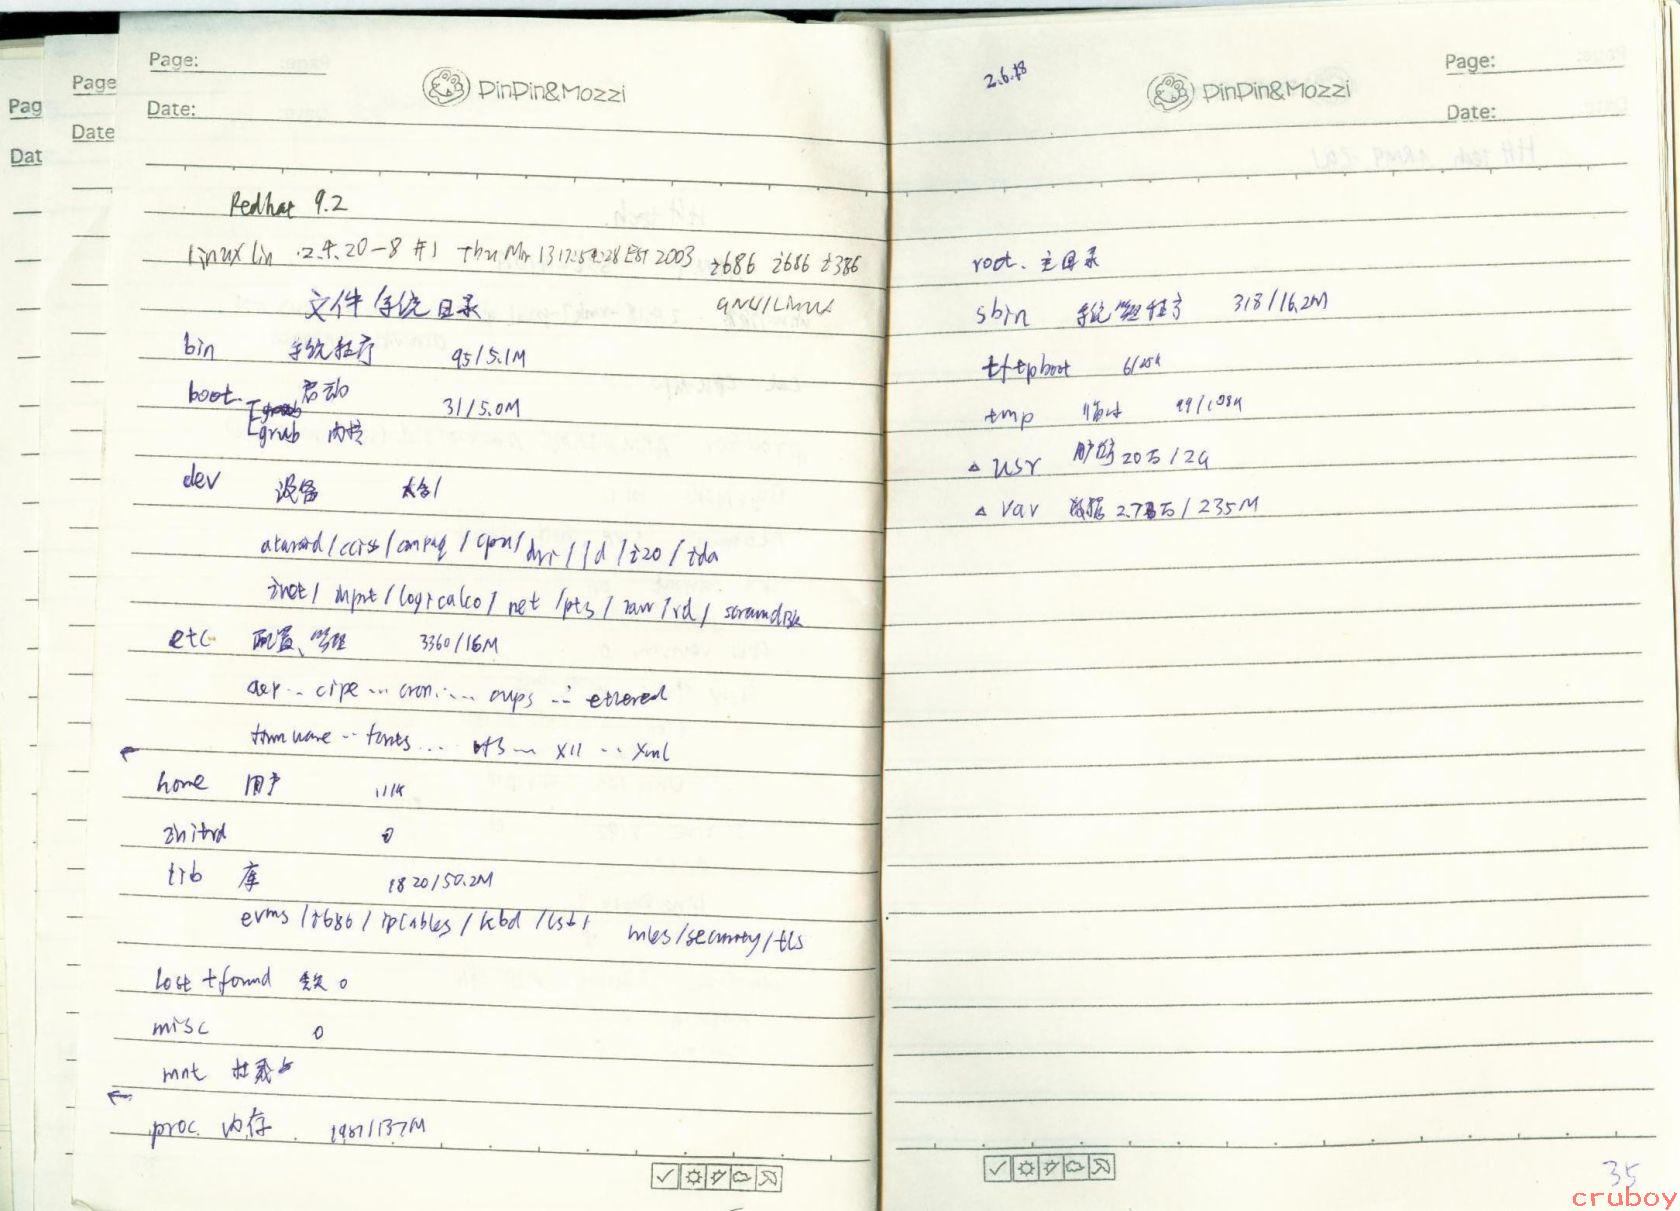 Page:
PinPin&Mozzi
Date:
Page
Date
Pag
Dat
Redhat 9.2
linux lin 2.4.20-8 #1 Thu Mar 13 17:54:28 EST 2003 i686 i686 i386
GNU/Linux
文件系统目录
bin 系统程序 95/5.1M
boot 启动 31/5.0M
grub 内核
dev 设备
ataraid/cciss/compaq/cpu/dri/fd/i20/ida
inet/input/logicalco/net/pts/raw/rd/scramdisk
etc 配置、管理 3360/16M
cipe ... cron ... cups ... ethereal
firmware ... fonts ... X11 ... xml
home 用户 11K
initrd 0
lib 库 1820/50.2M
evms/i686/iptables/kbd/lsb/ security/tls
lost+found 丢失 0
misc 0
mnt 挂载点
proc 内存 1987/137M
2.6.18
PinPin&Mozzi
Page:
Date:
root 主目录
sbin 系统管理程序 318/16.2M
tftpboot
tmp 临时
△ usr 用户 20万/2G
△ var 数据 235M
35
cruboy